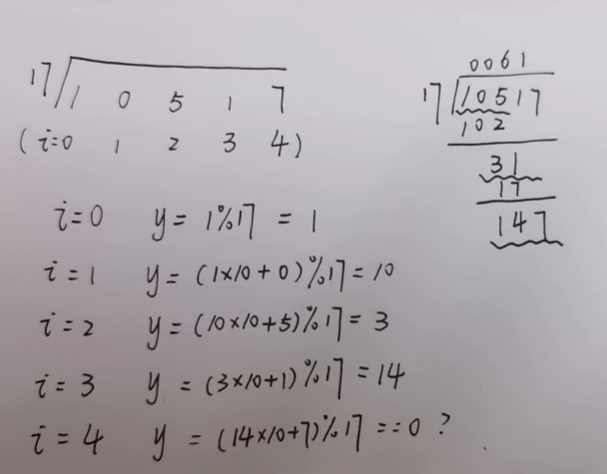 17/1 0 5 1 7
(i=0 1 2 3 4)
i=0 y=1%17=1
i=1 y=(1×10+0)%17=10
i=2 y=(10×10+5)%17=3
i=3 y=(3×10+1)%17=14
i=4 y=(14×10+7)%17==0?
0061
17/10517
102
31
17
147